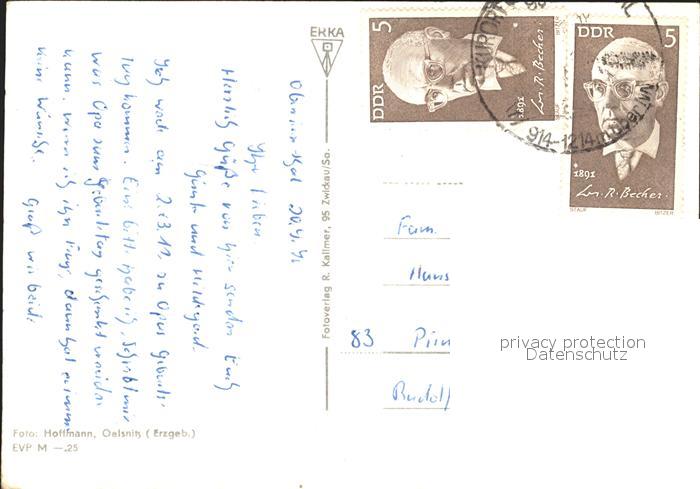 ERKA
DDR 5
1891
Joh. R. Becher
DDR 5
1891
Joh. R. Becher
STAUF BITZER
914-12
Ihr Lieben
Herzliche Grüße von hier senden Euch
Günter und Hildegard.
Ich werde am 2. o. 3.11. zu Opas Geburts-
tag kommen. Eine Bitte habe ich, schreibt mir
was Opa zum Geburtstag geschenkt werden
kann, wenn ich ihn frage, dann hat er immer
keine Wünsche. Gruß wir beide.
Fotoverlag R. Kallmer, 95 Zwickau/Sa.
Fam.
Hans
83 Pirn
Rudolf
privacy protection
Datenschutz
Foto: Hoffmann, Oelsnitz (Erzgeb.)
EVP M —.25